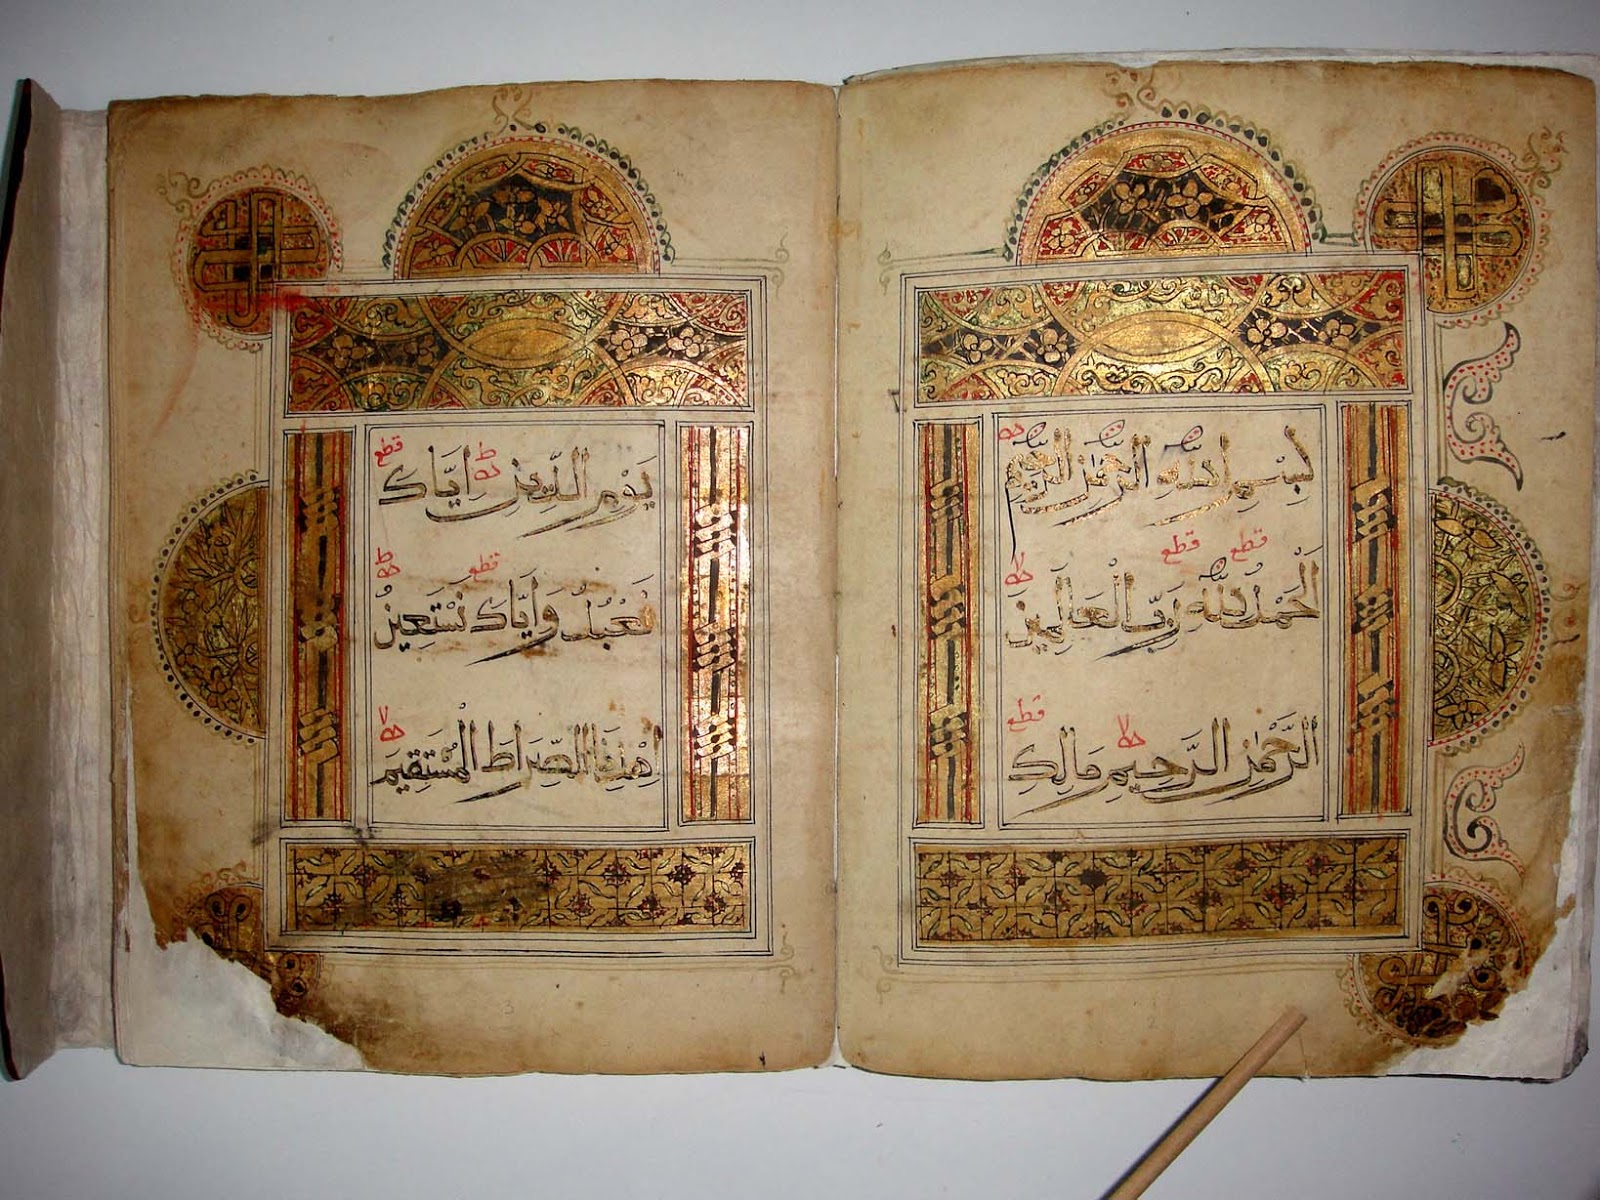 بِسْمِ اللَّهِ الرَّحْمَٰنِ الرَّحِيمِ
الْحَمْدُ لِلَّهِ رَبِّ الْعَالَمِينَ
الرَّحْمَٰنِ الرَّحِيمِ مَالِكِ
يَوْمِ الدِّينِ اِيَّاكَ
نَعْبُدُ وَاِيَّاكَ نَسْتَعِينُ
اِهْدِنَا الصِّرَاطَ الْمُسْتَقِيمَ